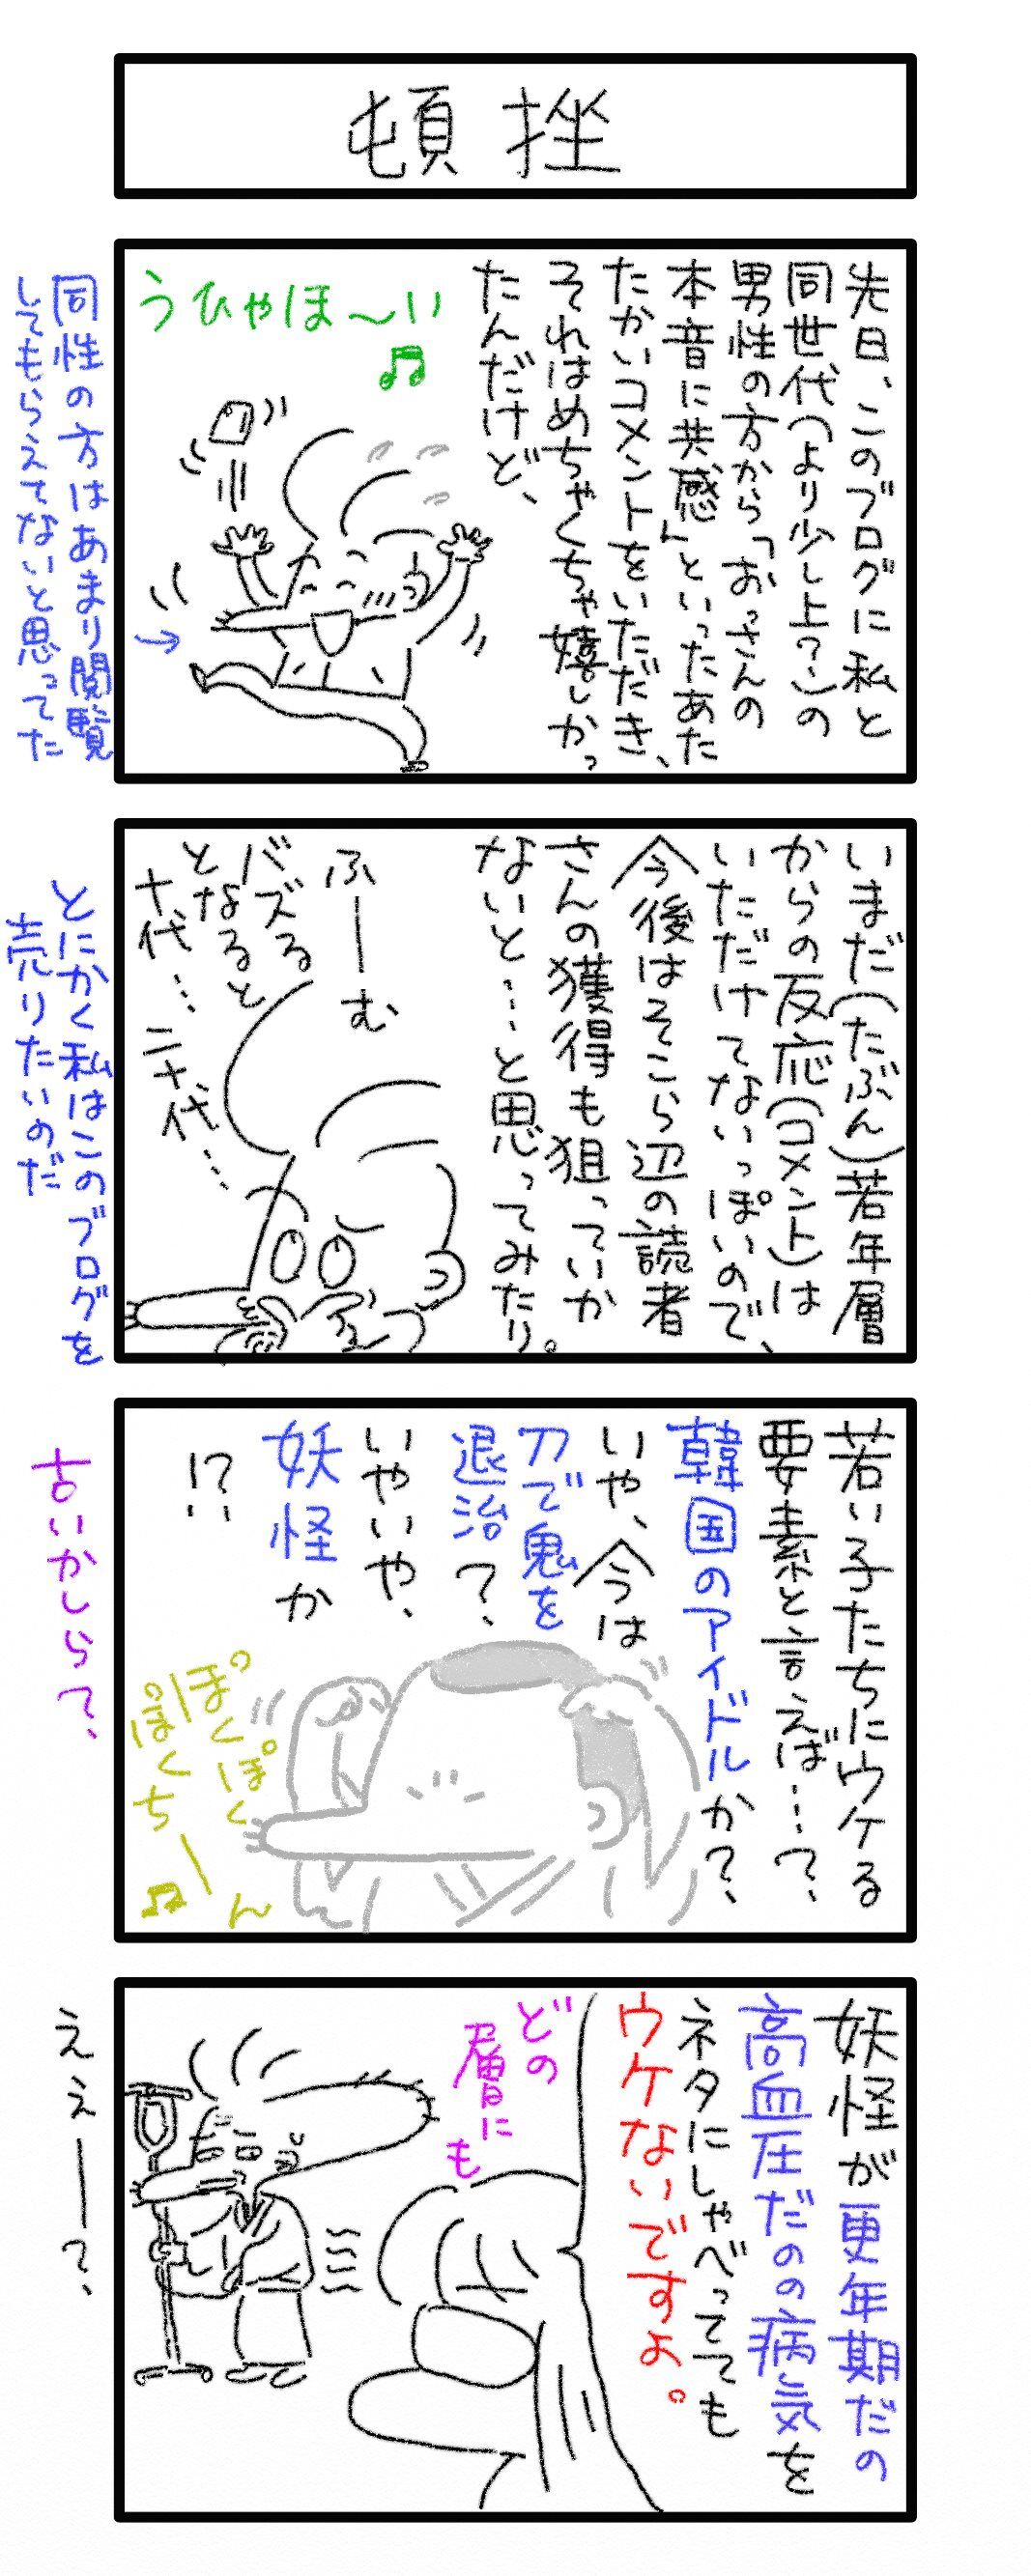 頓挫
先日、このブログに私と
同世代(より少し上?)の
男性の方から「おっさんの
本音に共感」といったあた
たかいコメントをいただき、
それはめちゃくちゃ嬉しかっ
たんだけど、
うひゃほ〜い♫
同性の方はあまり閲覧
してもらえてないと思ってた
→
いまだ(たぶん)若年層
からの反応(コメント)は
いただけてないっぽいので、
今後はそこら辺の読者
さんの獲得も狙っていか
ないと…と思ってみたり。
ふーむ
バズる
となると
十代…
二十代…
とにかく私はこのブログを
売りたいのだ
若い子たちにウケる
要素と言えば…?、
韓国のアイドルか?、
いや、今は
刀で鬼を
退治?、
いやいや、
妖怪か
!?
ぽくぽく
ぽーくちーん♫
古いかしら?、
妖怪が更年期だの
高血圧だのの病気を
ネタにしゃべってても
ウケないですよ。
どの
層にも
ええー?、